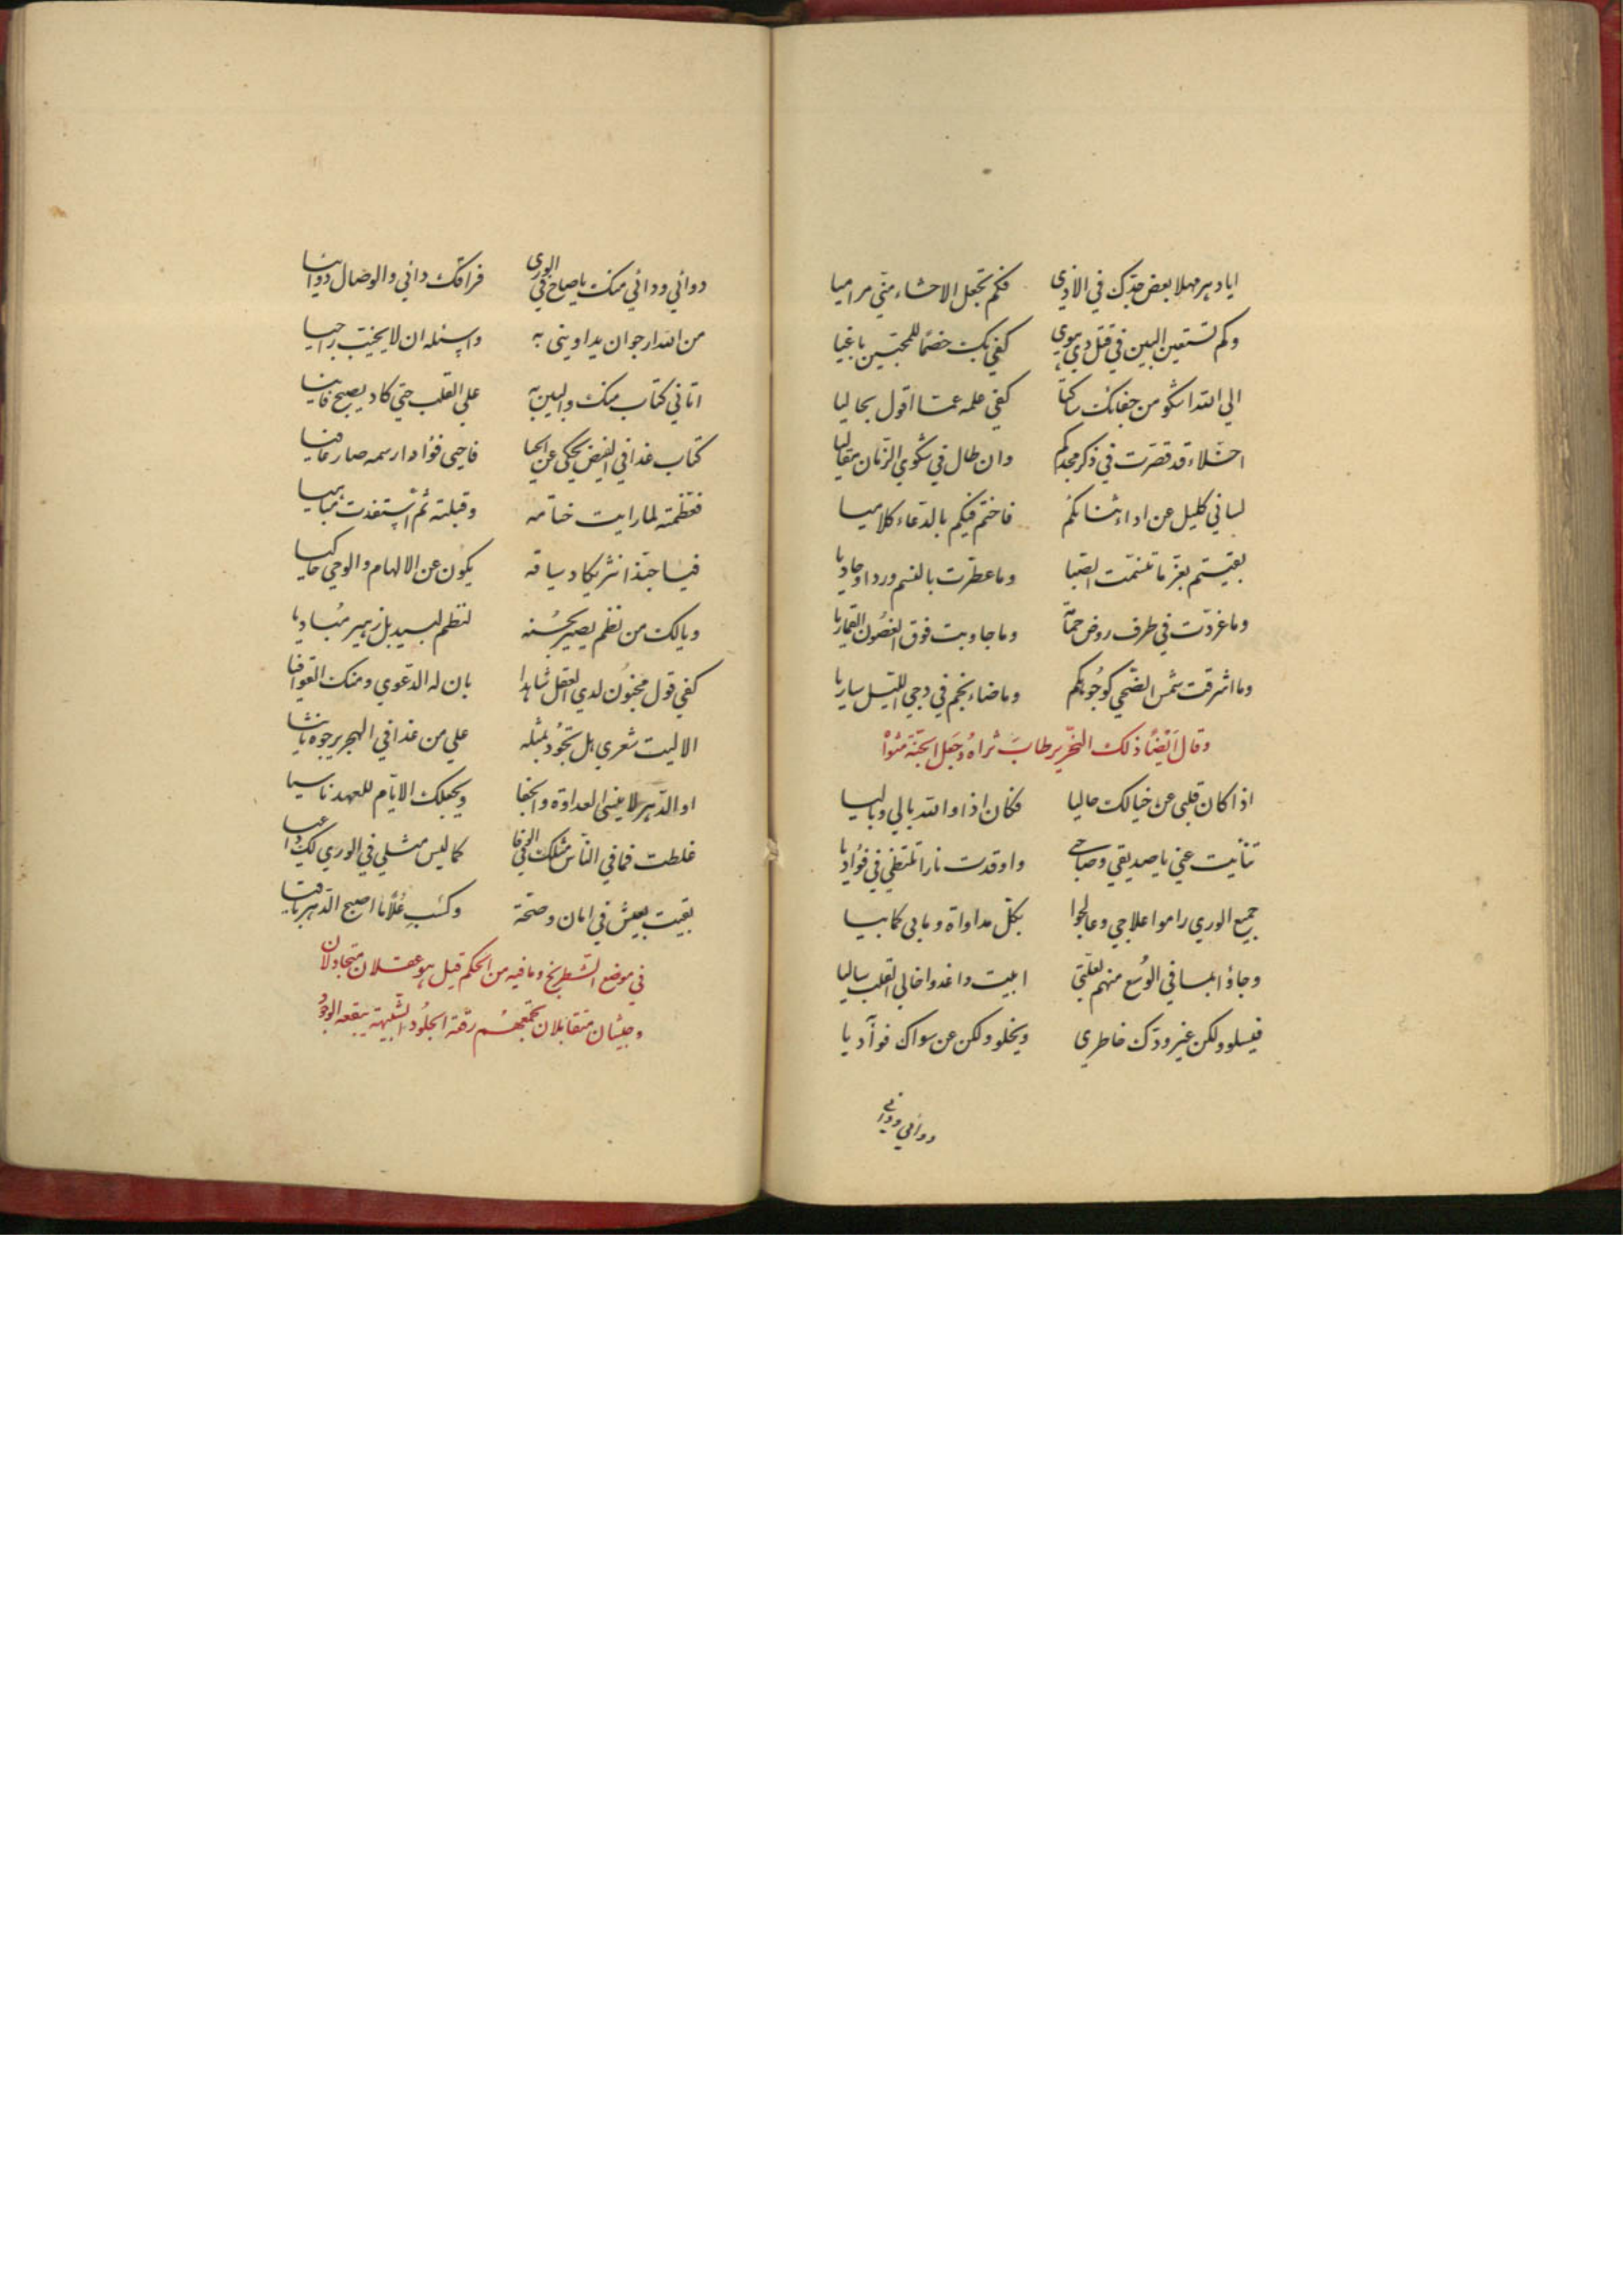 ايا دهر مهلا بعض جدك في الاذي فكم تجعل الاحشاء مني مراميا
وكم تستعين البين في قتل ذي هوي كفي بك خصما للمحبين باغيا
الي الله اشكو من جفائك ساكتا كفي علمه عما اقول بحاليا
اخلاء قد قصرت في ذكر مجدكم وان طال في شكوي الزمان مقاليا
لساني كليل عن اداء ثنائكم فاختم فيكم بالدعاء كلاميا
بقيتم بعز ما تنسمت الصبا وما عطرت بالنسم وردا وجاديا
وما غردت في طرف روض حمامة وما جاوبت فوق الغصون القماريا
وما اشرقت شمس الضحي كوجوهكم وما ضاء نجم في دجي الليل ساريا
وقال ايضا ذلك النحرير طاب ثراه وجعل الجنة مثواه
اذا كان قلبي عن خيالك خاليا فكان اذا والله بالي وباليا
تنأيت عني يا صديقي وصاحبي واوقدت نارا تلتظي في فؤاديا
جميع الوري راموا علاجي وعالجوا بكل مداواة وما بي كما بيا
وجاؤا بما في الوسع منهم لعلتي ابيت واغدوا خالي القلب ساليا
فيسلو ولكن غير ودك خاطري ويخلو ولكن عن سواك فوآديا
دوائي ودائي
دوائي ودائي منك يا صاح في الوري فراقك دائي والوصال دوائيا
من الله ارجو ان يداويني به واسئله ان لا يخيب راجيا
اتاني كتاب منك والبين به علي القلب حتي كاد يصبح فانيا
كتاب غدا في الفيض يحكي عن الحيا فاحيي فؤادا رسمه صار عافيا
فعظمته لما رايت ختامه وقبلته ثم استفدت مباهيا
فيا حبذا نثر يكاد سياقه يكون عن الالهام والوحي حاكيا
ويالك من نظم يصير بحسنه لنظم لبيد بل زهير مباديا
كفي قول مجنون لدي العقل شاهدا بان له الدعوي ومنك القوافيا
الا ليت شعري هل تجود بمثله علي من غدا في الهجر يرجوه ثانيا
او الدهر لا يفني العداوة والجفا ويجعلك الايام للعهد ناسيا
غلطت فما في الناس مثلك الوفا كما ليس مثلي في الوري لك داعيا
بقيت بعيش في امان وصحة وكسب علا ما اصبح الدهر باقيا
في موضع الشطرنج وما فيه من الحكم قيل هو عقلان متجادلان
وجيشان متقابلان تجمعهم رقة الجلود الشبيهة ببقعة الوجود